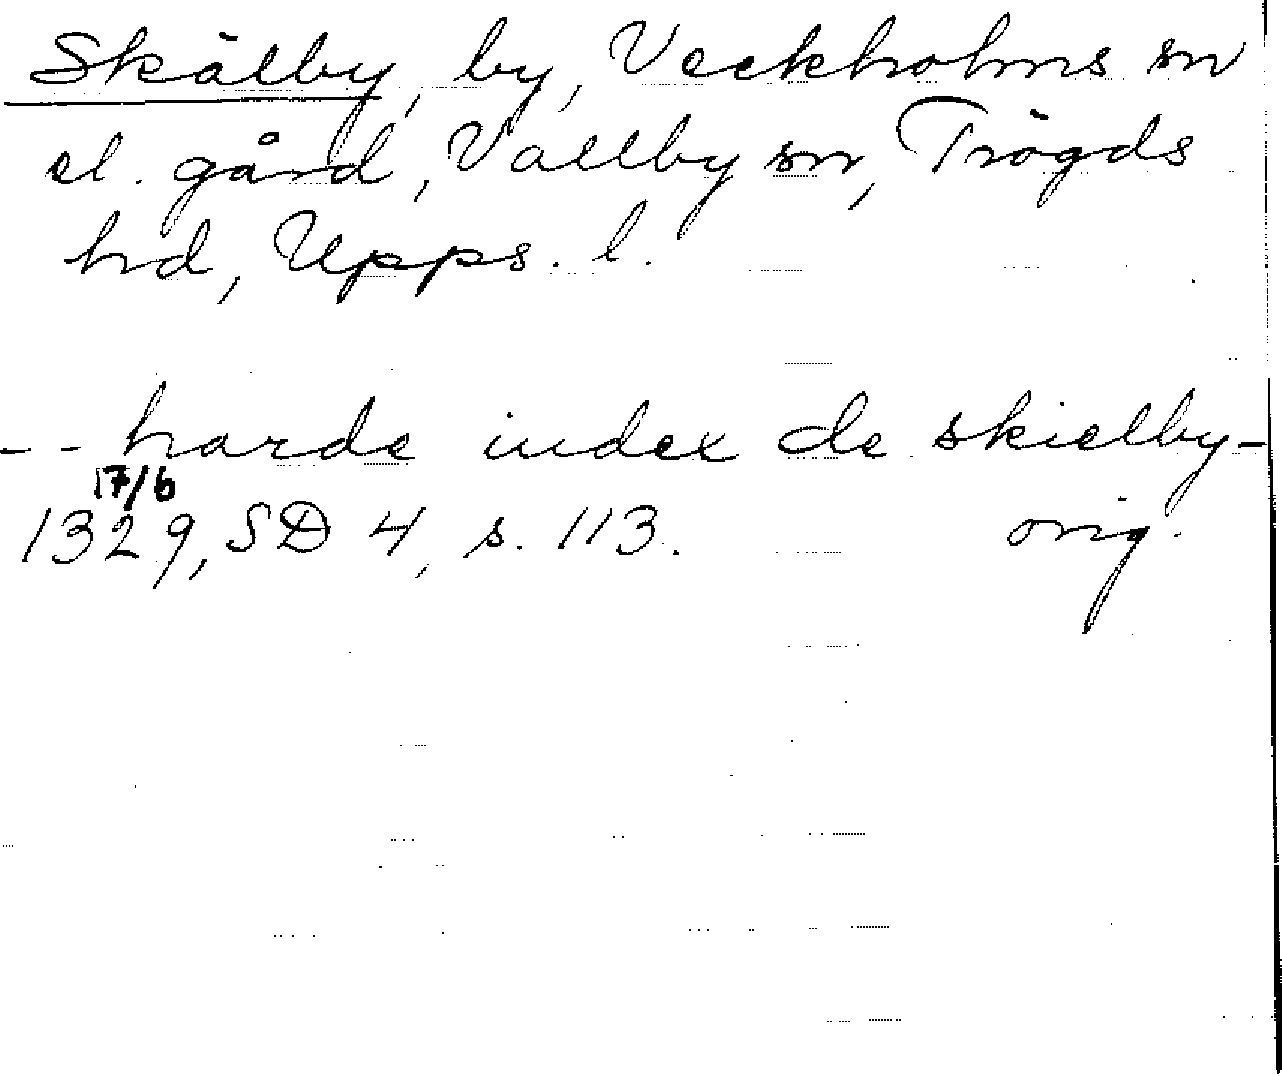 Skälby, by, Veckholms sn
el. gård, Vallby sn, Trögds
hd, Upps. l.
-- harde index de skielby-
17/6
1329, SD 4, s. 113. orig.